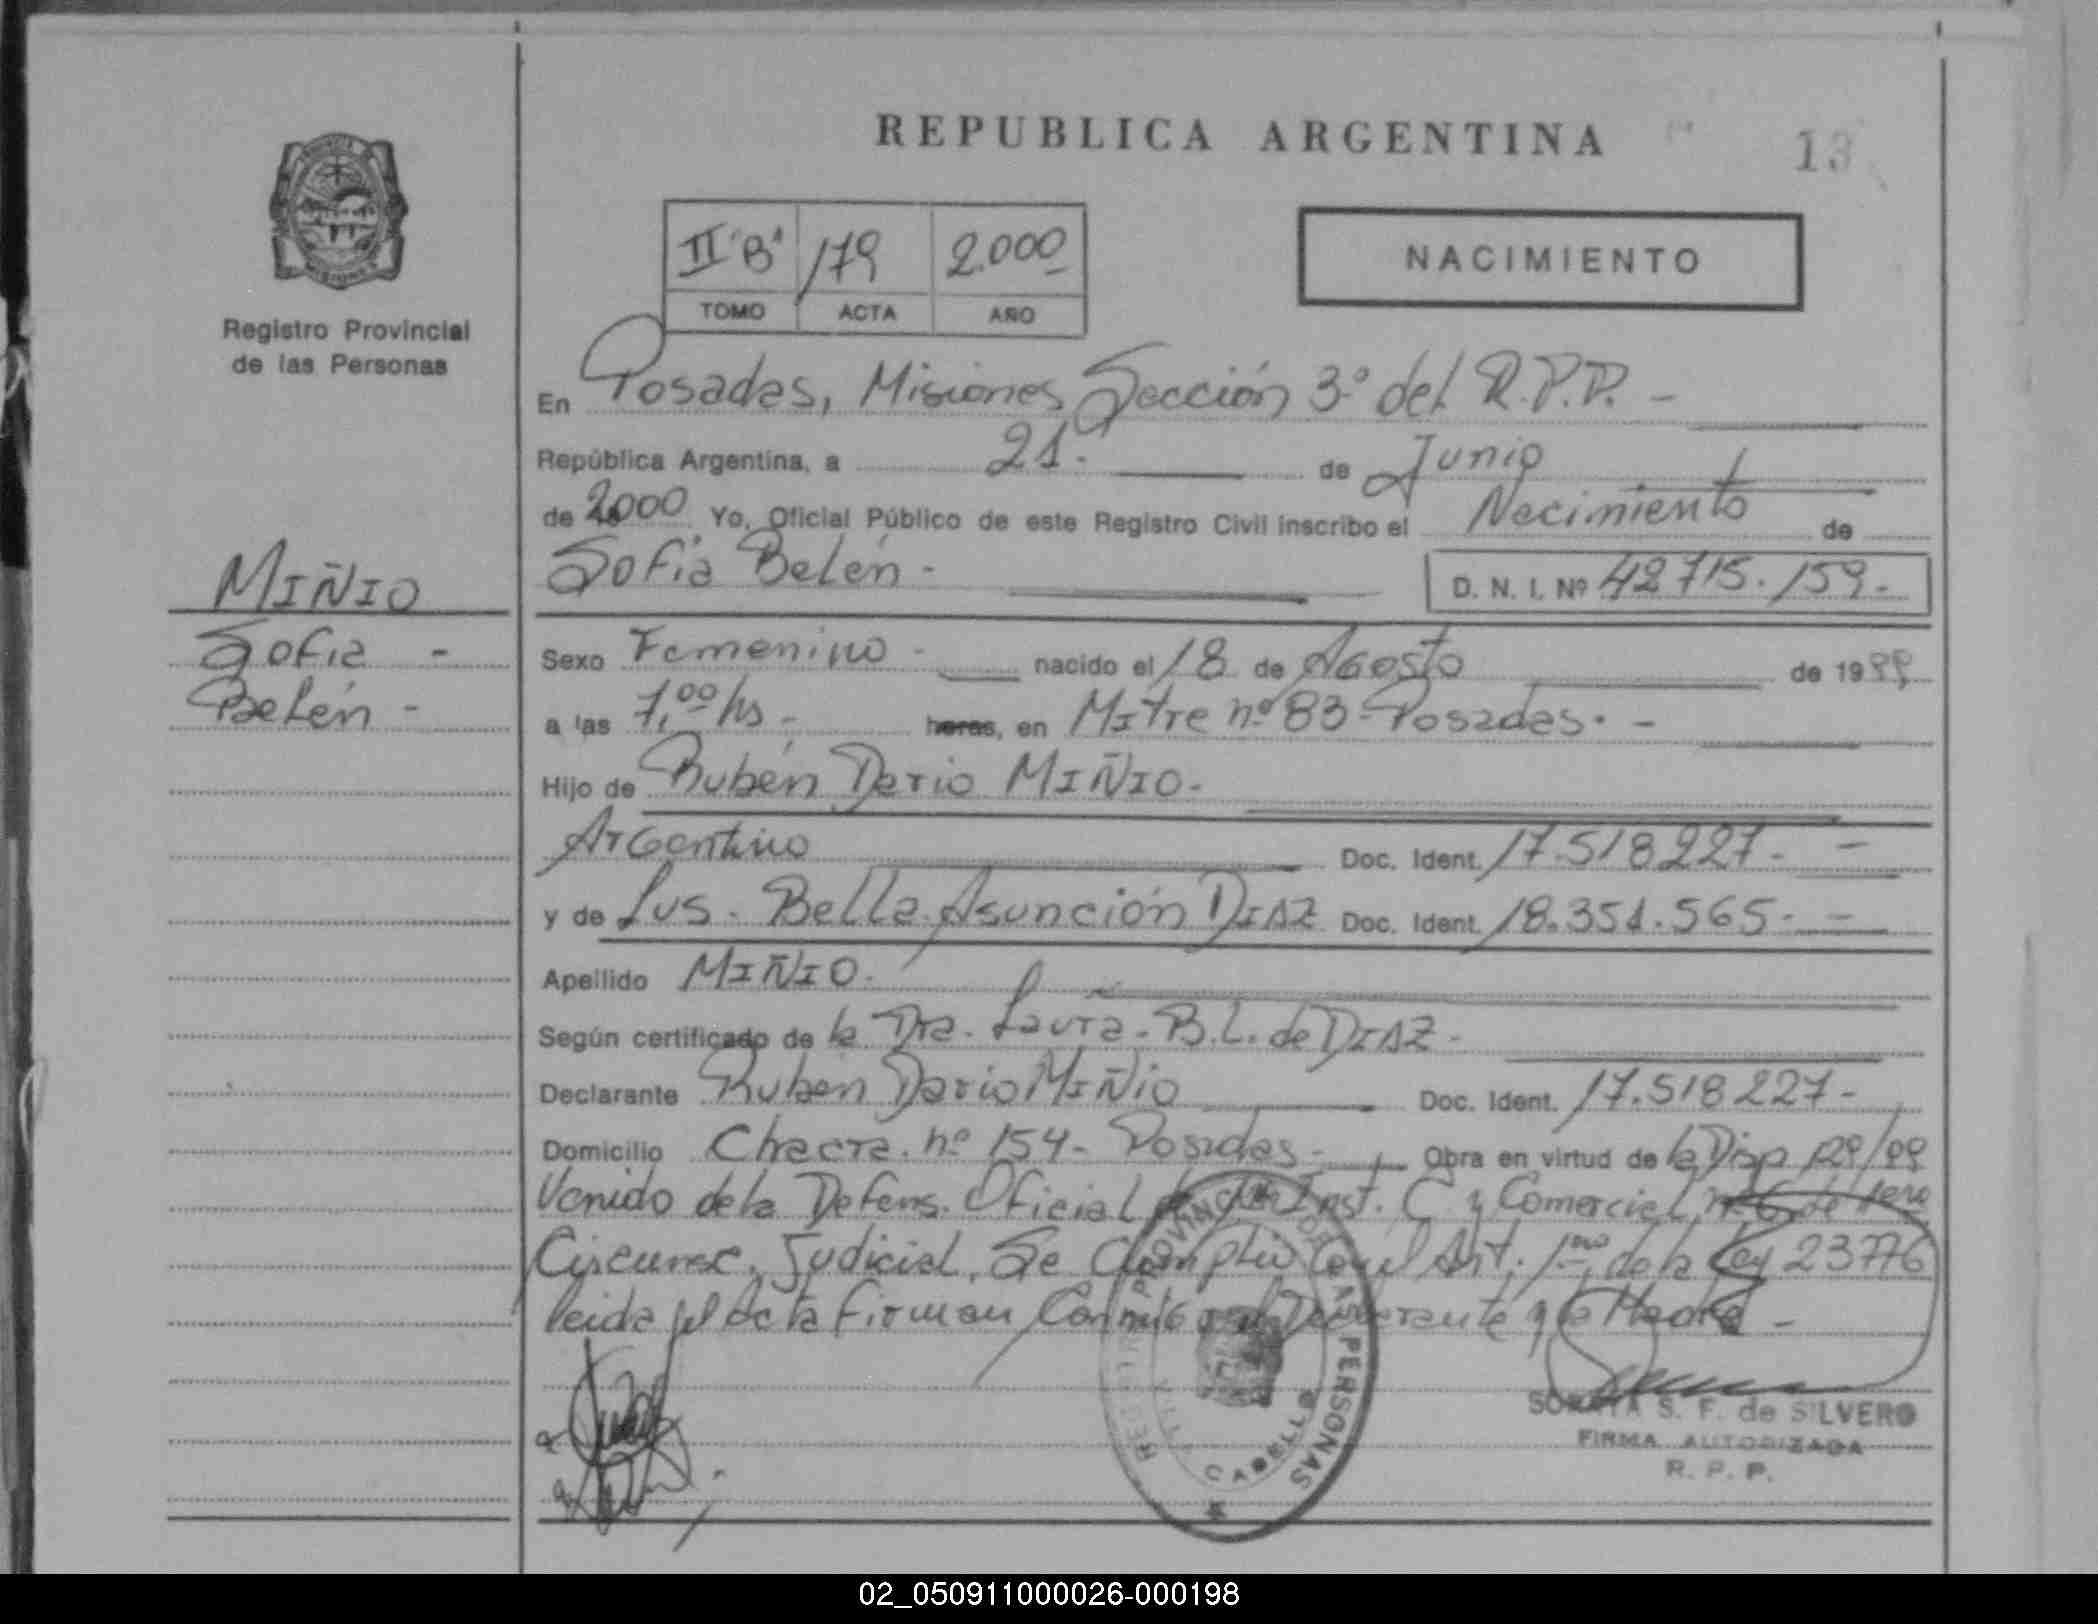 REPUBLICA ARGENTINA
13
Registro Provincial
de las Personas
II "B" 179 2.000
TOMO ACTA AÑO
NACIMIENTO
En Posadas, Misiones Sección 3º del R.P.P. -
República Argentina, a 21. de Junio
de 2000 Yo, Oficial Público de este Registro Civil inscribo el Nacimiento de
MIÑIO
Sofia Belén - D. N. I. Nº 42715.159.-
Sofia -
Sexo Femenino - nacido el 18 de Agosto de 1999
Belén -
a las 7,00 hs - horas, en Mitre nº 83 - Posadas. -
Hijo de Rubén Dario MIÑIO.
Argentino Doc. Ident. 17.518227. -
y de Lus. Bella Asunción DIAZ Doc. Ident. 18.351.565. -
Apellido MIÑIO.
Según certificado de la Dra. Laura. B.L. de DIAZ -
Declarante Ruben Dario MIÑIO Doc. Ident. 17.518227-
Domicilio Chacra nº 154- Posadas - Obra en virtud de la Disp 129/99
Venido de la Defens. Oficial Inst. C y Comercial nº 6 de 1era
Circunsc. Judicial. Se Cumplió el Art. 1ero de la Ley 23776
leida el Acta firman Conmigo el Declarante y la Madre -
REG. PROVINCIAL DE LAS PERSONAS
VILLA CABELLO
SORAYA S. F. de SILVERO
FIRMA AUTORIZADA
R. P. P.
02_050911000026-000198